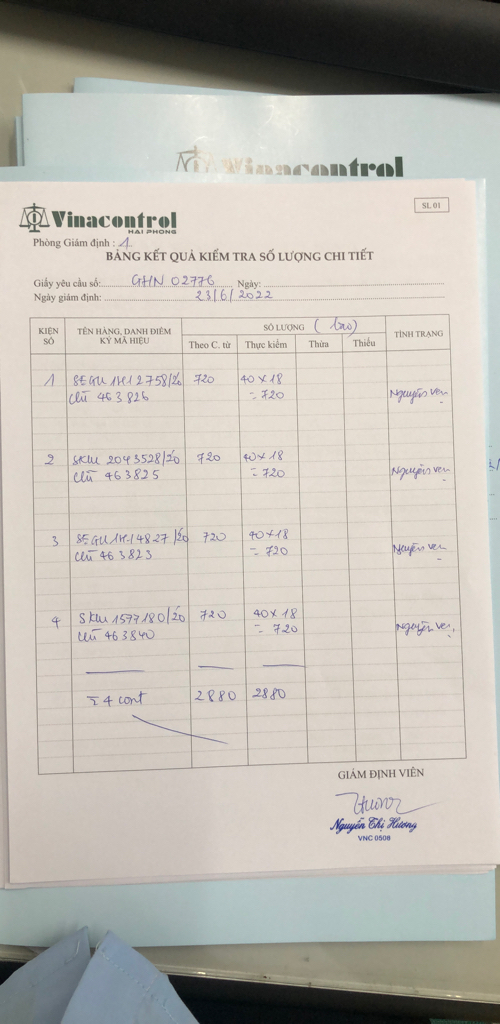 Vinacontrol
SL 01
Vinacontrol
HAI PHONG
Phòng Giám định : 1
BẢNG KẾT QUẢ KIỂM TRA SỐ LƯỢNG CHI TIẾT
Giấy yêu cầu số: GHN 02776 Ngày:
Ngày giám định: 23/6/2022
KIỆN SỐ TÊN HÀNG, DANH ĐIỂM KÝ MÃ HIỆU SỐ LƯỢNG (bao) TÌNH TRẠNG
Theo C. từ Thực kiểm Thừa Thiếu
1 720 40 x 18 Nguyên vẹn
463826 = 720
2 SKLU 2043528/20 720 40 x 18 Nguyên vẹn
463825 = 720
3 720 40 x 18 Nguyên vẹn
463823 = 720
4 SKLU 1577180/20 720 40 x 18 Nguyên vẹn
463840 = 720
Σ 4 cont 2880 2880
GIÁM ĐỊNH VIÊN
Nguyễn Thị Hương
VNC 0508